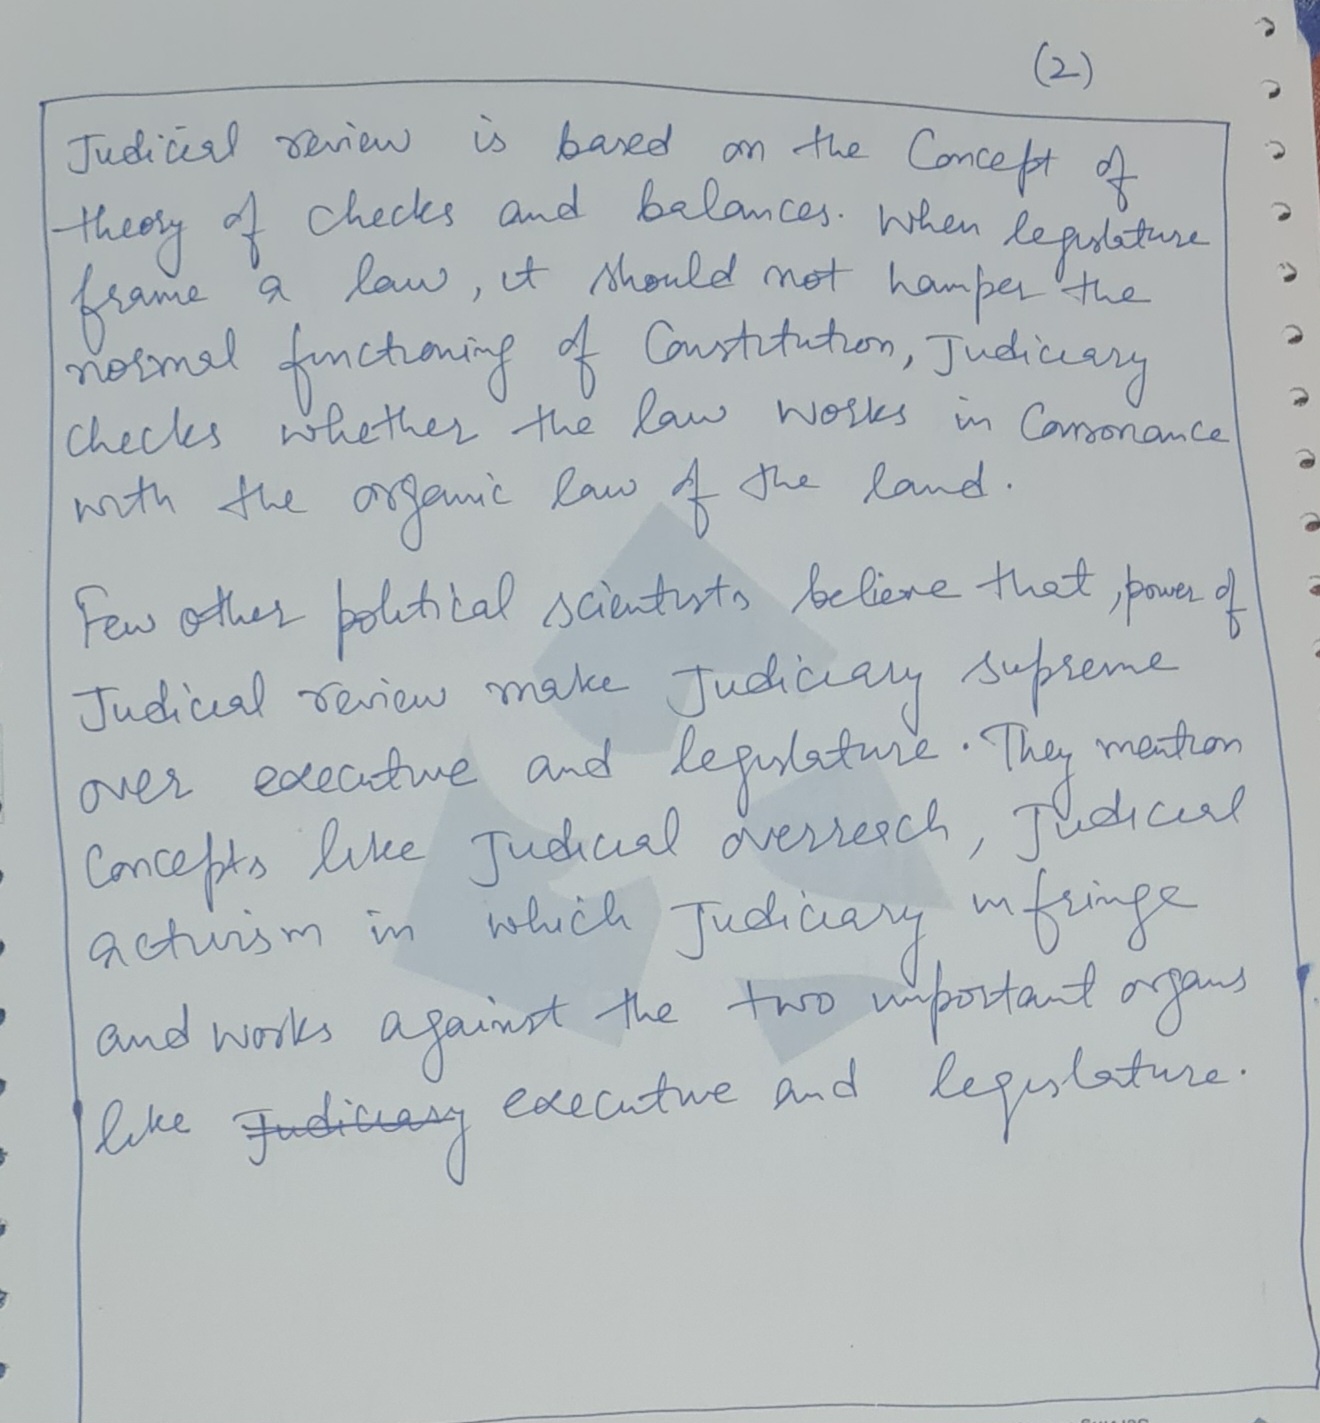 (2)
Judicial review is based on the Concept of
theory of checks and balances. When legislature
frame a law, it should not hamper the
normal functioning of Constitution, Judiciary
checks whether the law works in Consonance
with the organic law of the land.
Few other political scientists believe that, power of
Judicial review make Judiciary supreme
over executive and legislature. They mention
Concepts like Judicial overreach, Judicial
activism in which Judiciary infringe
and works against the two important organs
like Judiciary executive and legislature.